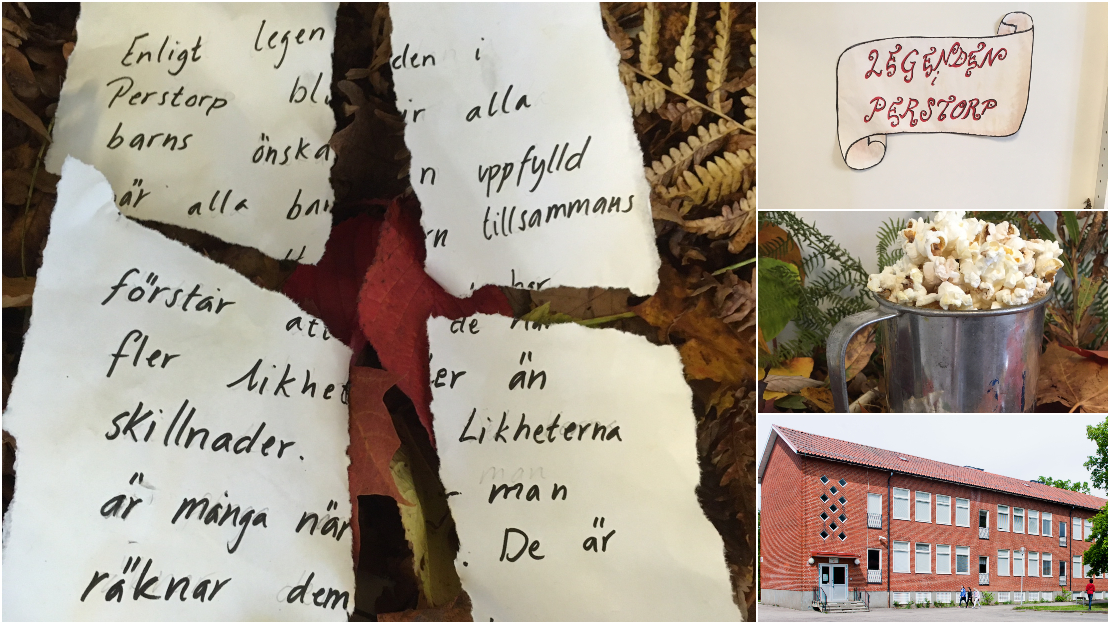 Enligt legenden i
Perstorp blir alla
barns önskan uppfylld
när alla barn tillsammans
förstår att de har
fler likheter än
skillnader. Likheterna
är många när man
räknar dem. De är
LEGENDEN
i
PERSTORP